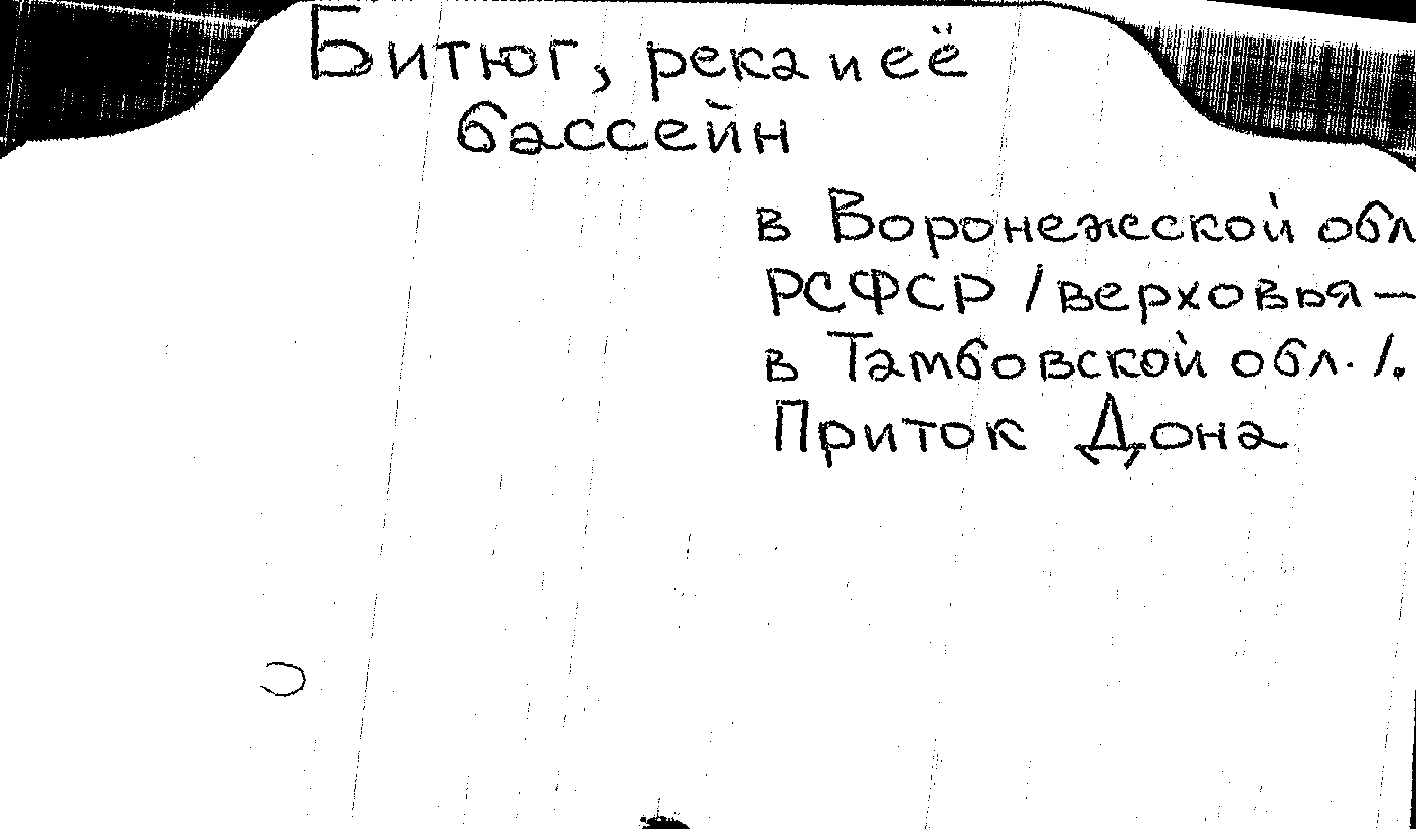 Битюг, река и её
бассейн
в Воронежской обл
РСФСР /верховья —
в Тамбовской обл. /.
Приток Дона